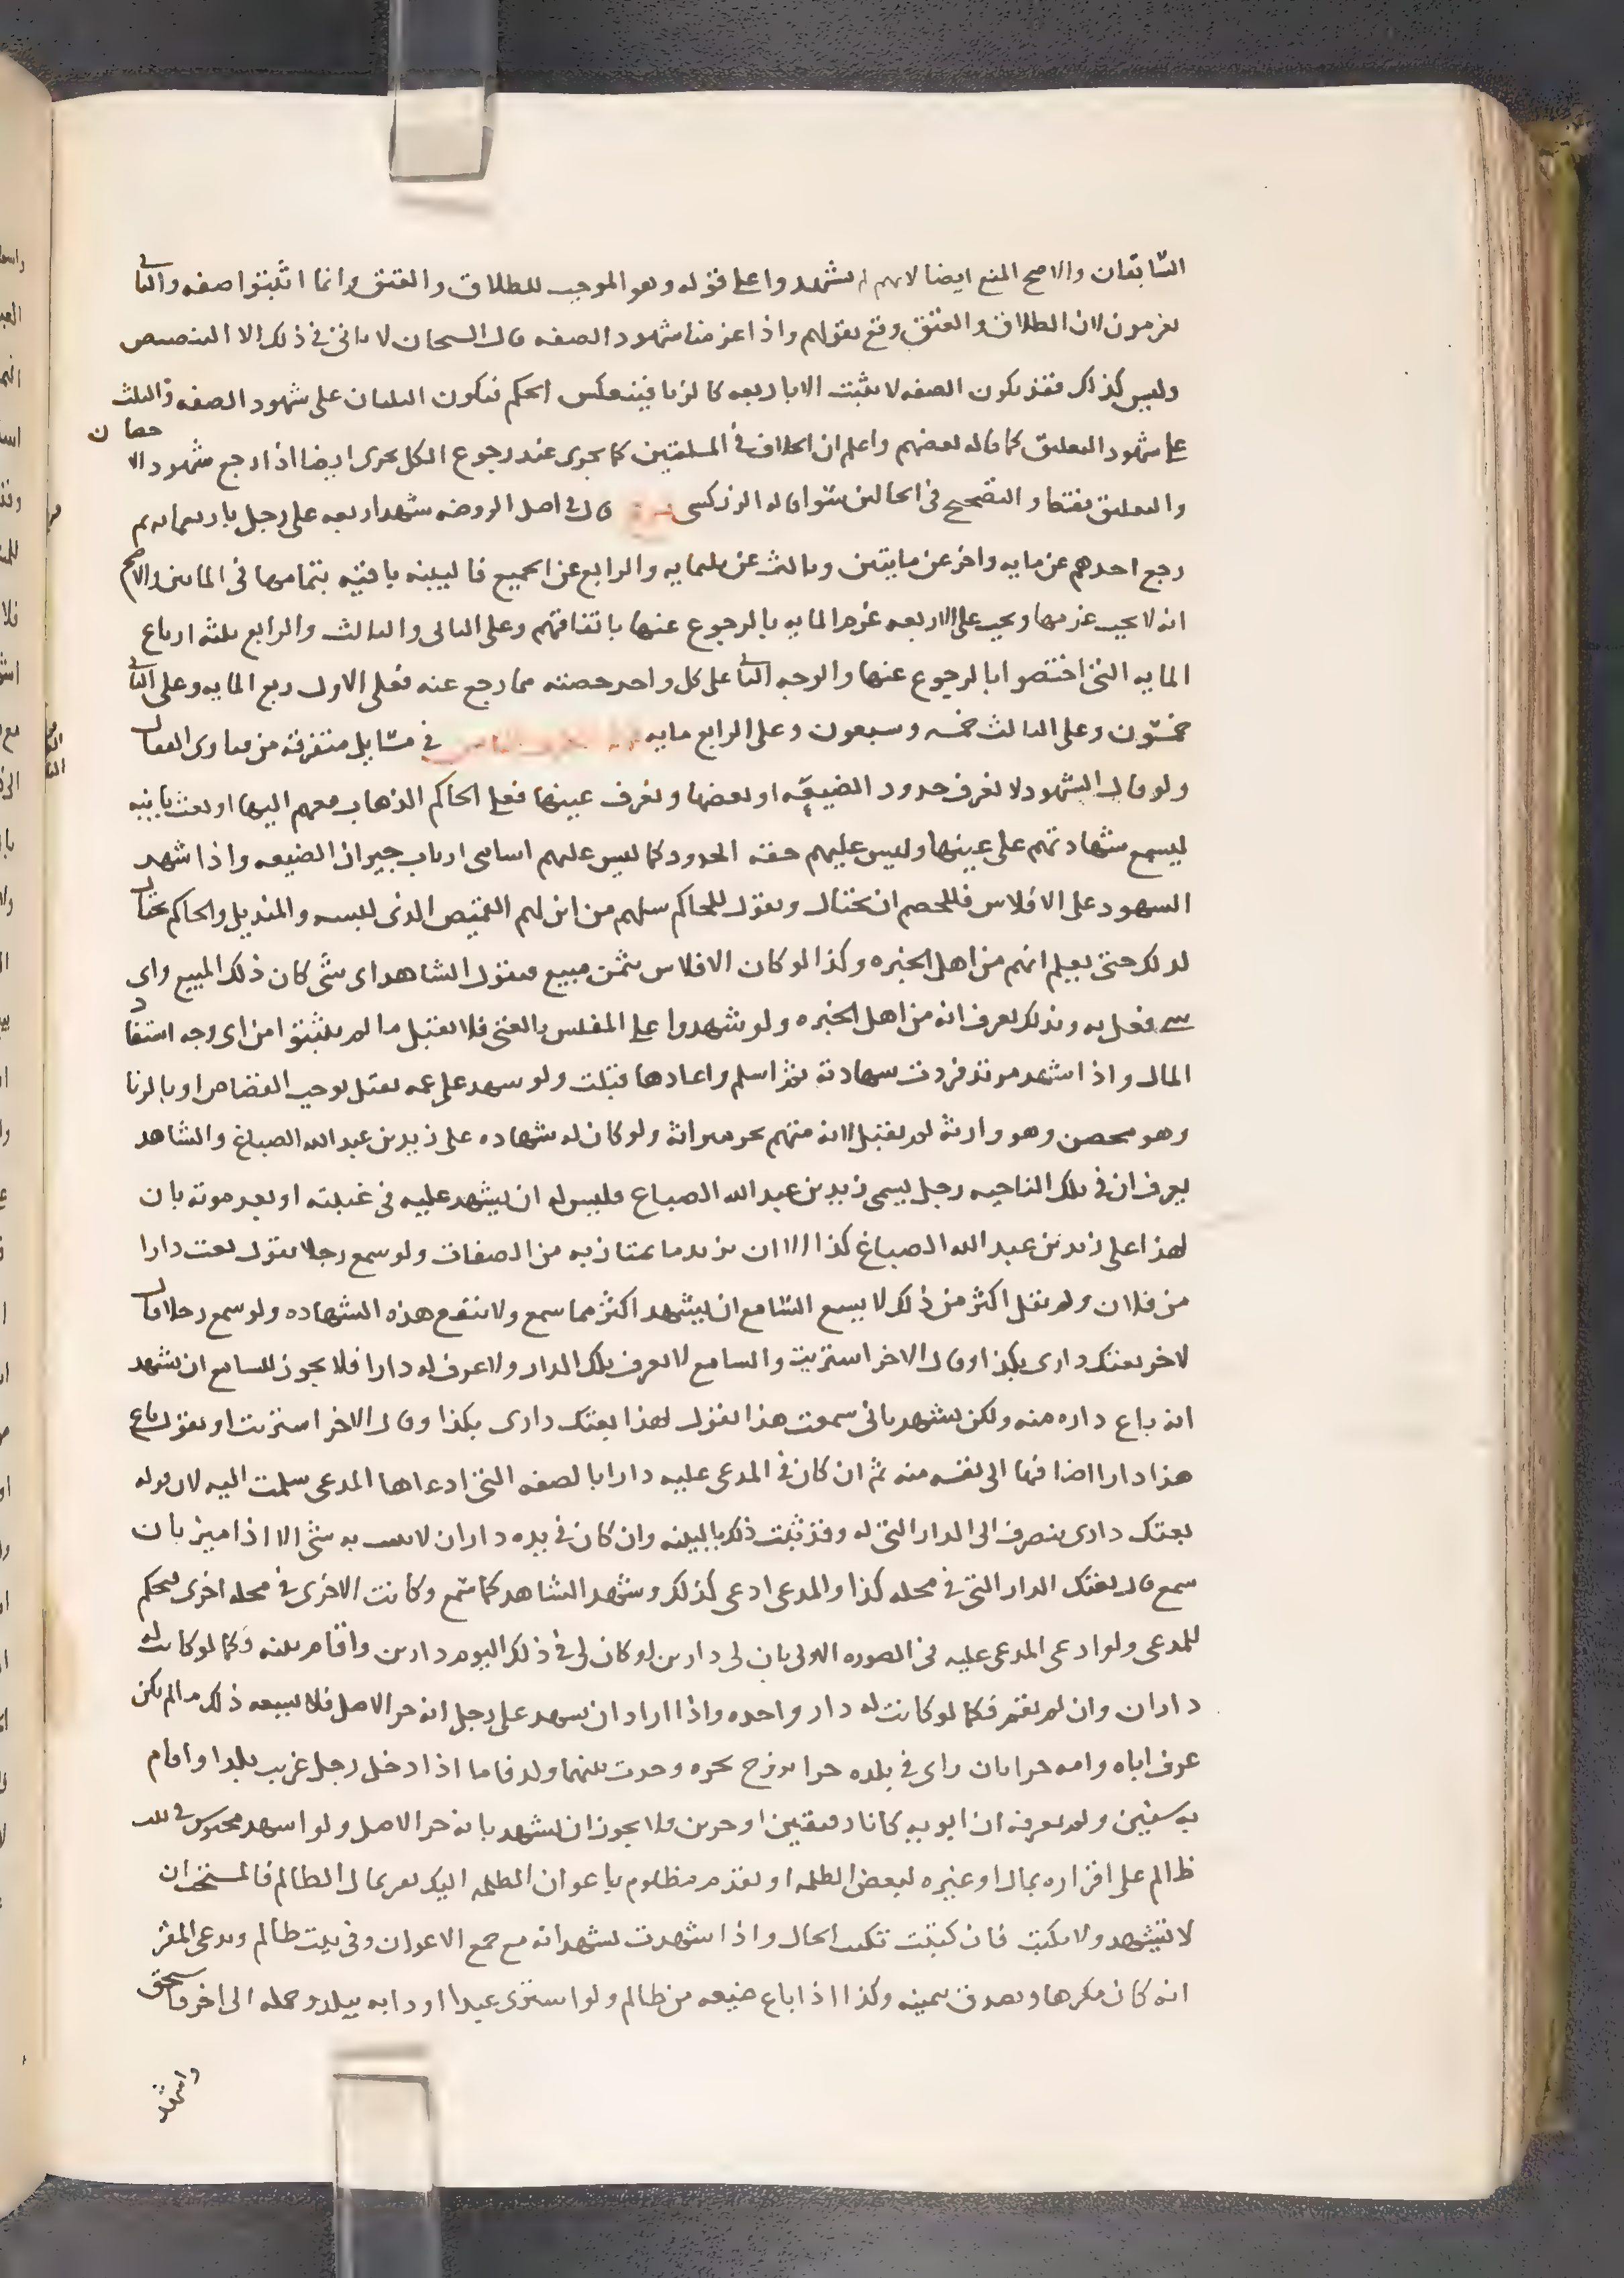 السابقان والاصح المنع ايضا لانهم لم يشهدوا على قوله وهو الموجب للطلاق والعتق وانما اثبتوا صفه والثاني
يغرمون لان الطلاق والعتق وقع بقولهم واذا غرمنا شهود الصفه قال الشيخان لا ياتي في ذلك الا التنصيص
وليس كذلك فقد يكون الصفه لا يثبت الا باربعه كالزنا فينعكس الحكم فيكون الثلثان على شهود الصفه والثلث
على شهود التعليق كما قاله بعضهم واعلم ان الخلاف في المسلتين كما يجري عند رجوع الكل يجري ايضا اذا رجع شهود الاحصان
والتعليق فقط والتصحيح في الحالين سوا قاله الزركشي قال في اصل الروضه شهد اربعه على رجل باربعمايه ثم
رجع احدهم عن مايه واخر عن مايتين وثالث عن ثلثمايه والرابع عن الجميع فالبينه باقيه بتمامها في المايتين والاصح
انه لا يجب غرمها ويجب على الاربعه غرم المايه بالرجوع عنها باتفاقهم وعلى الثاني والثالث والرابع ثلثه ارباع
المايه التي اختصوا بالرجوع عنها والوجه الثاني على كل واحد حصته مما رجع عنه فعلى الاول ربع المايه وعلى الثاني
خمسون وعلى الثالث خمسه وسبعون وعلى الرابع مايه في مسايل متفرقه من فتاوى القفال
ولو قال الشهود لا نعرف حدود الضيعه او بعضها ونعرف عينها فعلى الحاكم الذهاب معهم اليها او بعث نايبه
ليسمع شهادتهم على عينها وليس عليهم حفظ الحدود كما ليس عليهم اسامي ارباب جيران الضيعه واذا شهد
الشهود على الافلاس فللخصم ان يحتال ويقول للحاكم سلهم من اين لهم القميص الذي لبسه والمنديل والحاكم يحتال
لذلك حتى يعلم انهم من اهل الخبره وكذا لو كان الافلاس بثمن مبيع فيقول الشاهد اي شي كان ذلك المبيع واي
شي فعل به وبذلك يعرف انه من اهل الخبره ولو شهدوا على المفلس بالغنى فلا تقبل ما لم يثبتوا من اي وجه استفاد
المال واذا شهد مرتد فردت شهادته ثم اسلم واعادها قبلت ولو شهد على عمه بقتل يوجب القصاص او بالزنا
وهو محصن وهو وارثه لم يقبل لانه متهم بجر ميراثه ولو كان له شهاده على زيد بن عبد الله الصباغ والشاهد
يعرف ان في تلك الناحيه رجل يسمى زيد بن عبد الله الصباغ فليس له ان يشهد عليه في غيبته او بعد موته بان
لهذا على زيد بن عبد الله الصباغ كذا الا ان يزيد ما يمتاز به من الصفات ولو سمع رجلا يقول بعت دارا
من فلان ولم يقل اكثر من ذلك لا يسع السامع ان يشهد اكثر مما سمع ولا ينفع هذه الشهاده ولو سمع رجلا قال
لاخر بعتك داري بكذا وقال الاخر اشتريت والسامع لا يعرف تلك الدار ولا عرف له دارا فلا يجوز للسامع ان يشهد
انه باع داره منه ولكن يشهد باني سمعت هذا يقول لهذا بعتك داري بكذا وقال الاخر اشتريت او يقول باع
هذا دارا اضافها الى نفسه منه ثم ان كان في المدعى عليه دارا بالصفه التي ادعاها المدعي سلمت اليه لان قوله
بعتك داري ينصرف الى الدار التي له وقد ثبت ذلك بالبينه وان كان في يده داران لا يثبت به شي الا اذا ميز بان
سمع قال بعتك الدار التي في محله كذا والمدعي ادعى كذلك وشهد الشاهد كما سمع وكانت الاخرى في محله اخرى فيحكم
للمدعي ولو ادعى المدعى عليه في الصوره الاولى بان لي دارين او كان لي في ذلك اليوم دارين واقام بينه فكما لو كانت له
داران وان لم يقم فكما لو كانت له دار واحده واذا اراد ان يشهد على رجل انه حر الاصل فلا يسعه ذلك ما لم يكن
عرف اباه وامه حرا بان راى في بلده حرا تزوج بحره وحدث بينهما ولد فاما اذا دخل رجل غريب بلدا واقام
به سنين ولم يعرفه ان ابويه كانا رقيقين او حرين فلا يجوز ان يشهد بانه حر الاصل ولو اشهد محبوس في بيت
ظالم على اقراره بمال او غيره لبعض الظلمه او تقدم مظلوم باعوان الظلمه اليك يقر بمال الظالم فالمستحب ان
لا تشهد ولا تكتب فان كتبت تكتب الحال واذا شهدت تشهد انه مع جمع الاعوان وفي بيت ظالم ويدعي المقر
انه كان مكرها ويصدق بيمينه وكذا اذا باع ضيعه من ظالم ولو اشترى عبدا او دابه ببلد وحمله الى اخر فاستحق